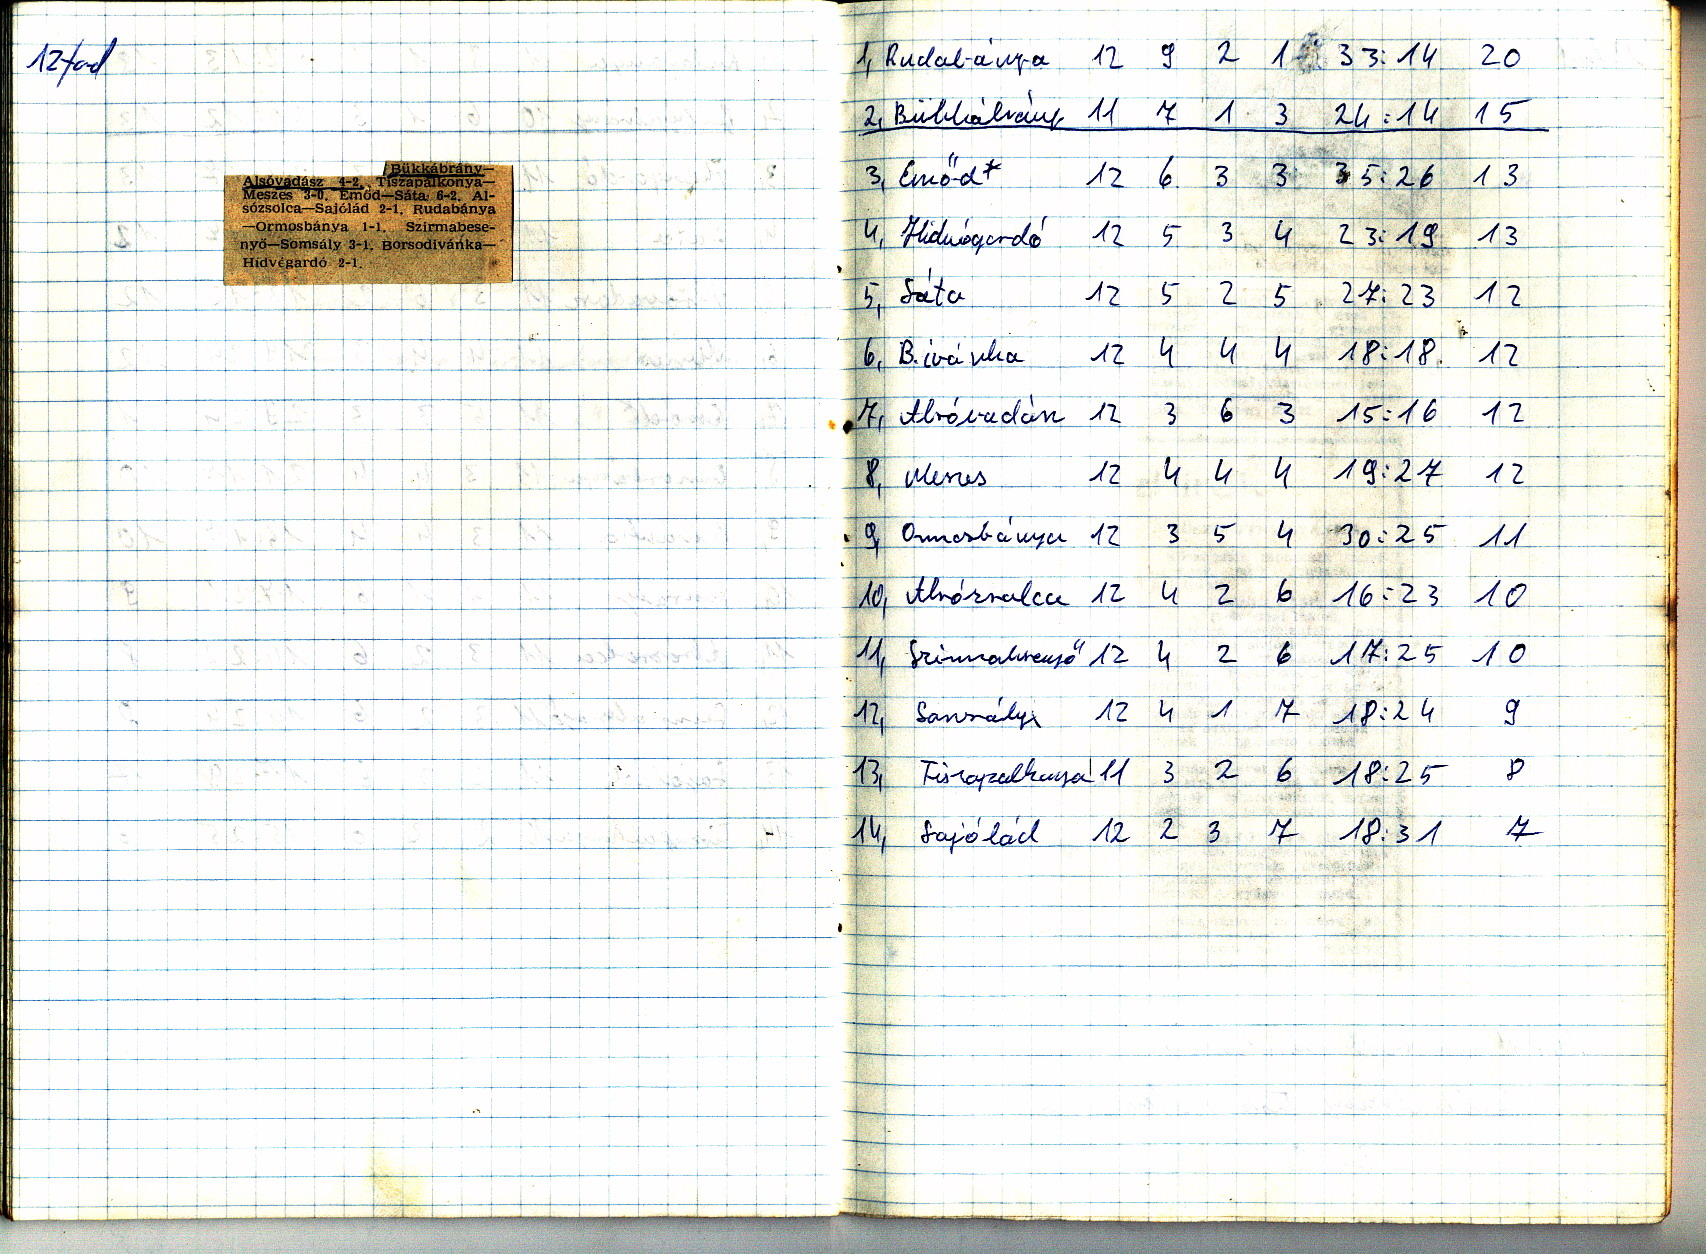 12/ad
Bükkábrány—
Alsóvadász 4-2, Tiszapalkonya—
Meszes 3-0, Emőd—Sáta 6-2, Al-
sózsolca—Sajólád 2-1, Rudabánya
—Ormosbánya 1-1, Szirmabese-
nyő—Somsály 3-1, Borsodivánka—
Hídvégardó 2-1.
1, Rudabánya 12 9 2 1 33:14 20
2, Bükkábrány 11 7 1 3 24:14 15
3, Emőd* 12 6 3 3 35:26 13
4, Hídvégardó 12 5 3 4 23:19 13
5, Sáta 12 5 2 5 27:23 12
6, B.ivánka 12 4 4 4 18:18 12
7, Alsóvadász 12 3 6 3 15:16 12
8, Meszes 12 4 4 4 19:27 12
9, Ormosbánya 12 3 5 4 30:25 11
10, Alsózsolca 12 4 2 6 16:23 10
11, Szirmabesenyő 12 4 2 6 17:25 10
12, Somsály 12 4 1 7 18:24 9
13, Tiszapalkonya 11 3 2 6 18:25 8
14, Sajólád 12 2 3 7 18:31 7